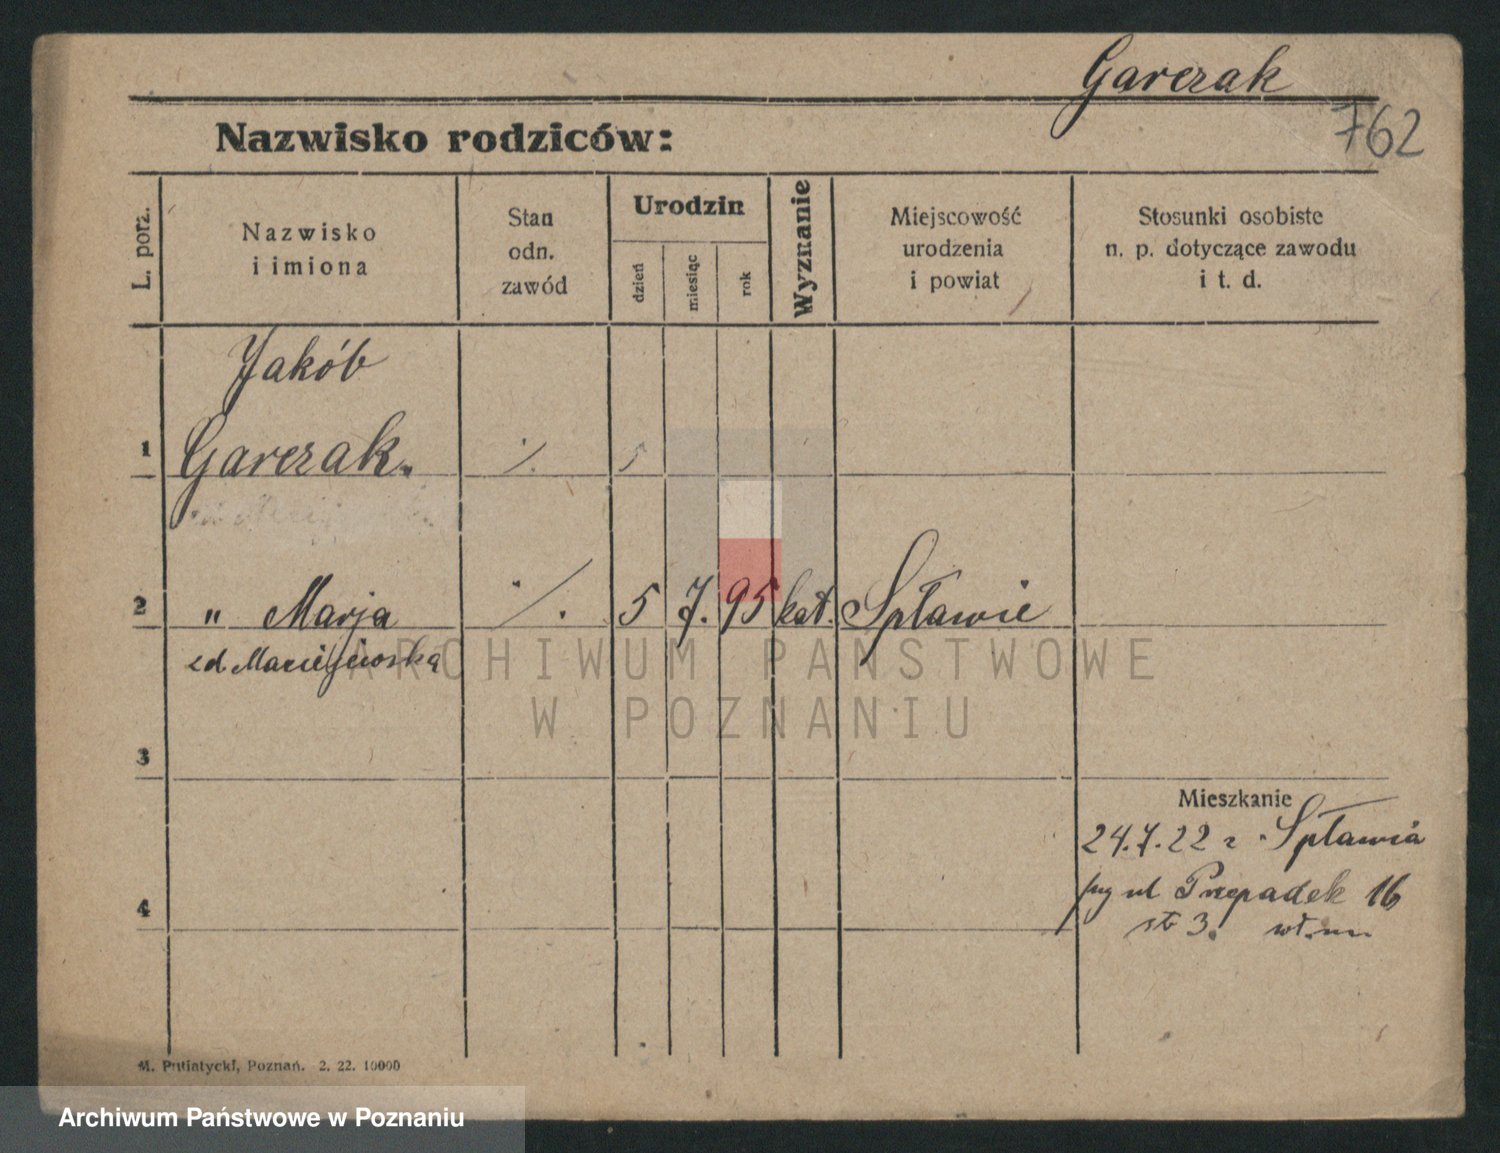 Garczak
762
Nazwisko rodziców:
L. porz.
Nazwisko
i imiona
Stan
odn.
zawód
Urodzin
dzień
miesiąc
rok
Wyznanie
Miejscowość
urodzenia
i powiat
Stosunki osobiste
n. p. dotyczące zawodu
i t. d.
Jakób
1 Garczak. ./.
2 " Marja ./. 5 7. 95 kat. Spławie
zd. Maciejewska
3
Mieszkanie
24.7.22 z Spławia
ul Przepadek 16
4
3.
M. Putiatycki, Poznań. 2. 22. 10000
ARCHIWUM PAŃSTWOWE
W POZNANIU
Archiwum Państwowe w Poznaniu